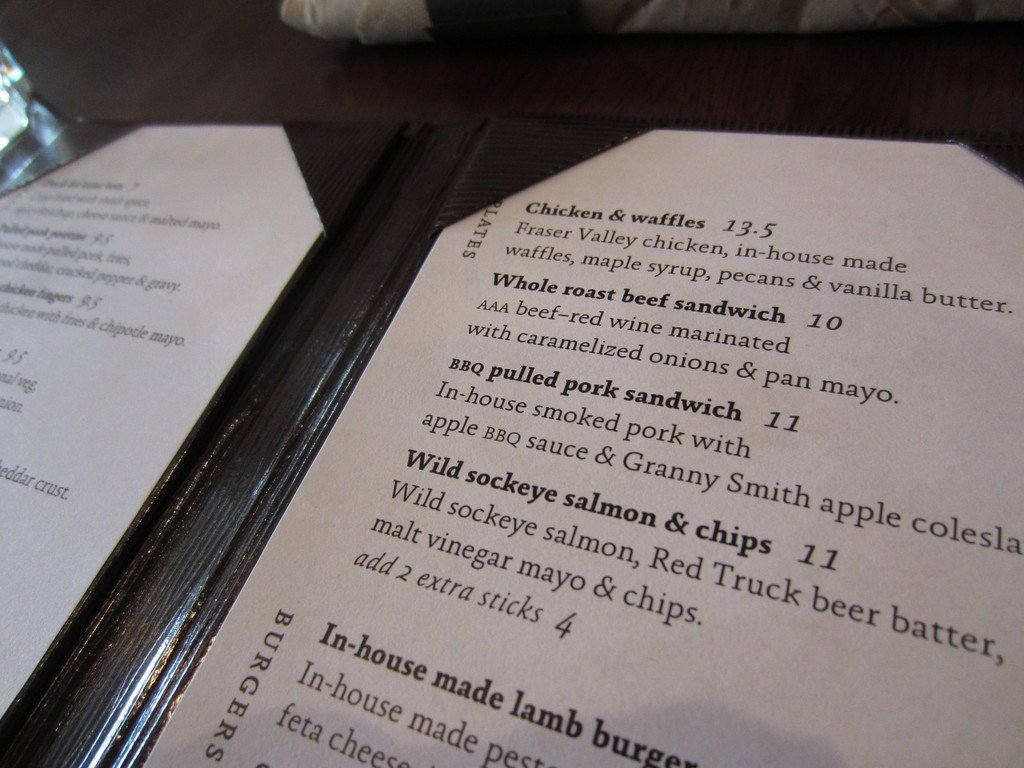 cheese sauce & malted mayo.
Pulled pork poutine 9.5
pulled pork, fries,
cheddar, cracked pepper & gravy.
chicken fingers 9.5
chicken with fries & chipotle mayo.
9.5
cheddar crust.
PLATES
Chicken & waffles 13.5
Fraser Valley chicken, in-house made
waffles, maple syrup, pecans & vanilla butter.
Whole roast beef sandwich 10
AAA beef–red wine marinated
with caramelized onions & pan mayo.
BBQ pulled pork sandwich 11
In-house smoked pork with
apple BBQ sauce & Granny Smith apple colesla
Wild sockeye salmon & chips 11
Wild sockeye salmon, Red Truck beer batter,
malt vinegar mayo & chips.
add 2 extra sticks 4
BURGERS
In-house made lamb burger
In-house made pest
feta cheese